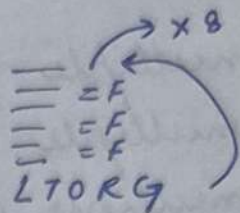 × 8
= F
= F
= F
LTORG